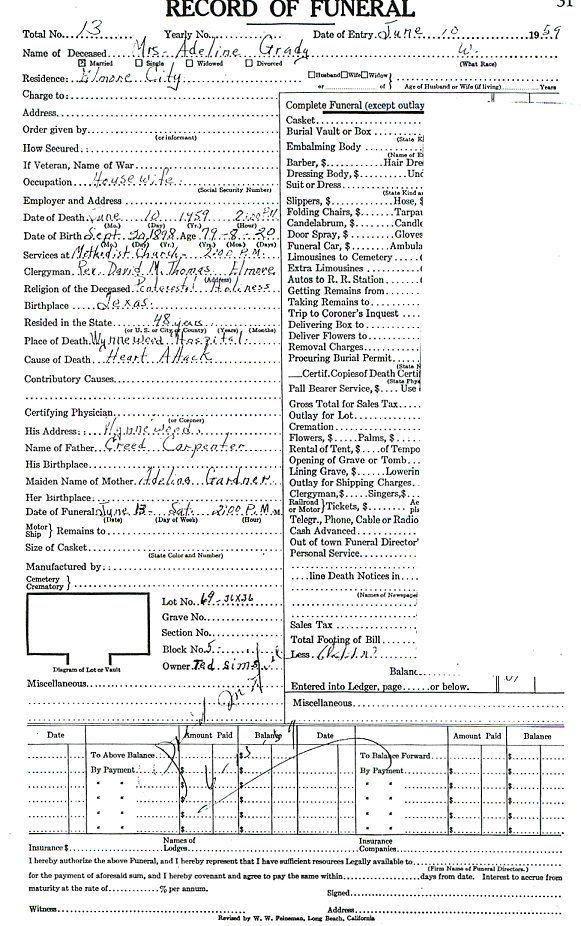 31
RECORD OF FUNERAL
Total No. 13 Yearly No. Date of Entry June 10 1959
Name of Deceased Mrs. Adeline Grady W.
Married Single Widowed Divorced (What Race)
Residence: Elmore City Husband Wife Widow or of Age of Husband or Wife (if living) Years
Charge to:
Address
Order given by
(or informant)
How Secured:
If Veteran, Name of War
Occupation House wife
(Social Security Number)
Employer and Address
Date of Death June 10 1959 2:00 P.M.
(Mo.) (Day) (Yr.) (Hour)
Date of Birth Sept. 20, 1898 Age 79-8-20
(Mo.) (Day) (Yr.) (Yrs.) (Mos.) (Days)
Services at Methodist Church 2:00 P.M.
Clergyman Rev. David M. Thomas Elmore
(Address)
Religion of the Deceased Holiness
Birthplace Texas
Resided in the State 48 years
(or U. S. or City or County) (Years) (Months)
Place of Death Wynnewood Hospital
Cause of Death Heart Attack
Contributory Causes
Certifying Physician
(or Coroner)
His Address: Wynnewood
Name of Father Creed Carpenter
His Birthplace
Maiden Name of Mother Adeline Gardner
Her Birthplace
Date of Funeral June 13 Sat. 2:00 P.M. M.
(Date) (Day of Week) (Hour)
Motor Ship } Remains to
Size of Casket
(State Color and Number)
Manufactured by
Cemetery Crematory }
Lot No. 69-36X36
Grave No.
Section No.
Block No. 5
Owner Ted Sims
Diagram of Lot or Vault
Miscellaneous
Complete Funeral (except outlay
Casket
Burial Vault or Box
(State K
Embalming Body
(Name of E
Barber, $ Hair Dre
Dressing Body, $ Und
Suit or Dress
(State Kind a
Slippers, $ Hose, $
Folding Chairs, $ Tarpa
Candelabrum, $ Candle
Door Spray, $ Glove
Funeral Car, $ Ambula
Limousines to Cemetery
Extra Limousines
Autos to R. R. Station
Getting Remains from
Taking Remains to
Trip to Coroner's Inquest
Delivering Box to
Deliver Flowers to
Removal Charges
Procuring Burial Permit
(State N
Certif. Copies of Death Certif
(State Phys
Pall Bearer Service, $ Use
Gross Total for Sales Tax
Outlay for Lot
Cremation
Flowers, $ Palms, $
Rental of Tent, $ of Tempo
Opening of Grave or Tomb
Lining Grave, $ Lowerin
Outlay for Shipping Charges
Clergyman, $ Singers, $
Railroad or Motor } Tickets, $ Ae pla
Telegr., Phone, Cable or Radio
Cash Advanced
Out of town Funeral Director'
Personal Service
line Death Notices in
(Names of Newspaper
Sales Tax
Total Footing of Bill
Less
Balanc
Entered into Ledger, page or below.
Miscellaneous
Date Amount Paid Balance Date Amount Paid Balance
To Above Balance $ To Balance Forward $
By Payment $ By Payment $
" " $ " " $
" " $ " " $
" " $ " " $
" " $ " " $
Insurance $ Names of Lodges Insurance Companies
I hereby authorize the above Funeral, and I hereby represent that I have sufficient resources Legally available to
(Firm Name of Funeral Directors.)
for the payment of aforesaid sum, and I hereby covenant and agree to pay the same within days from date. Interest to accrue from
maturity at the rate of % per annum.
Signed
Witness Address
Revised by W. W. Feineman, Long Beach, California